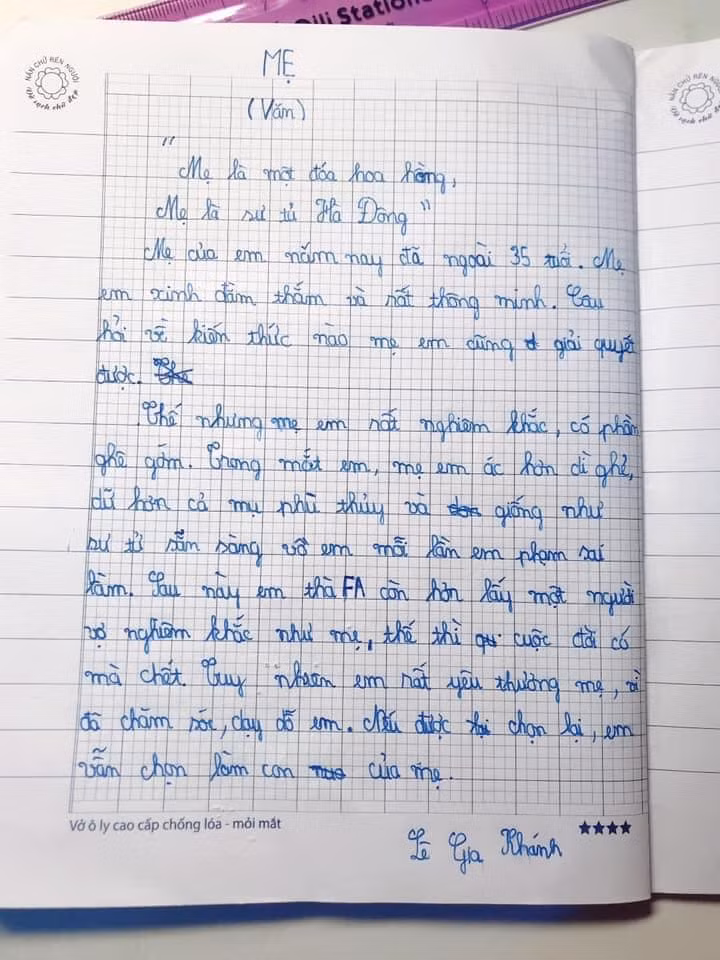 Oili Station
NẮN CHỮ RÈN NGƯỜI
Vở sạch chữ đẹp
NẮN CHỮ RÈN NGƯỜI
Vở sạch chữ đẹp
MẸ
(Văn)
"
Mẹ là một đóa hoa hồng,
Mẹ là sư tử Hà Đông"
Mẹ của em năm nay đã ngoài 35 tuổi. Mẹ
em xinh đằm thắm và rất thông minh. Câu
hỏi về kiến thức nào mẹ em cũng giải quyết
được.
Thế nhưng mẹ em rất nghiêm khắc, có phần
ghê gớm. Trong mắt em, mẹ em ác hơn dì ghẻ,
dữ hơn cả mụ phù thủy và giống như
sư tử sẵn sàng vồ em mỗi lần em phạm sai
lầm. Sau này em thà FA còn hơn lấy một người
vợ nghiêm khắc như mẹ, thế thì cuộc đời có
mà chết. Tuy nhiên em rất yêu thương mẹ, vì
đã chăm sóc, dạy dỗ em. Nếu được chọn lại, em
vẫn chọn làm con của mẹ.
Vở ô ly cao cấp chống lóa - mỏi mắt
Lê Gia Khánh